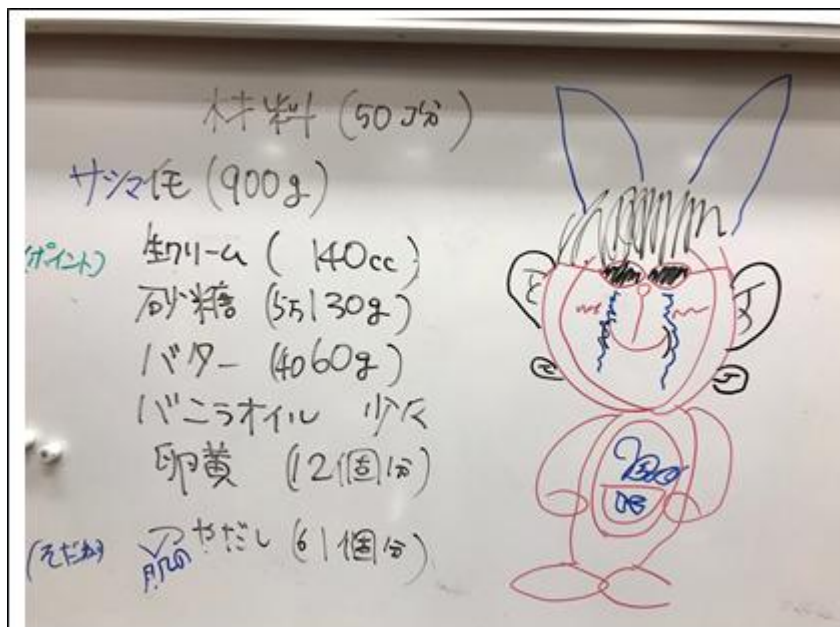 材料 (50コ分)
サシマ芋 (900g)
(ポイント) 生クリーム ( 140cc)
砂糖 (55130g)
バター (4060g)
バニラオイル 少々
卵黄 (12個分)
(そだね) つやだし (61個分)
肌の